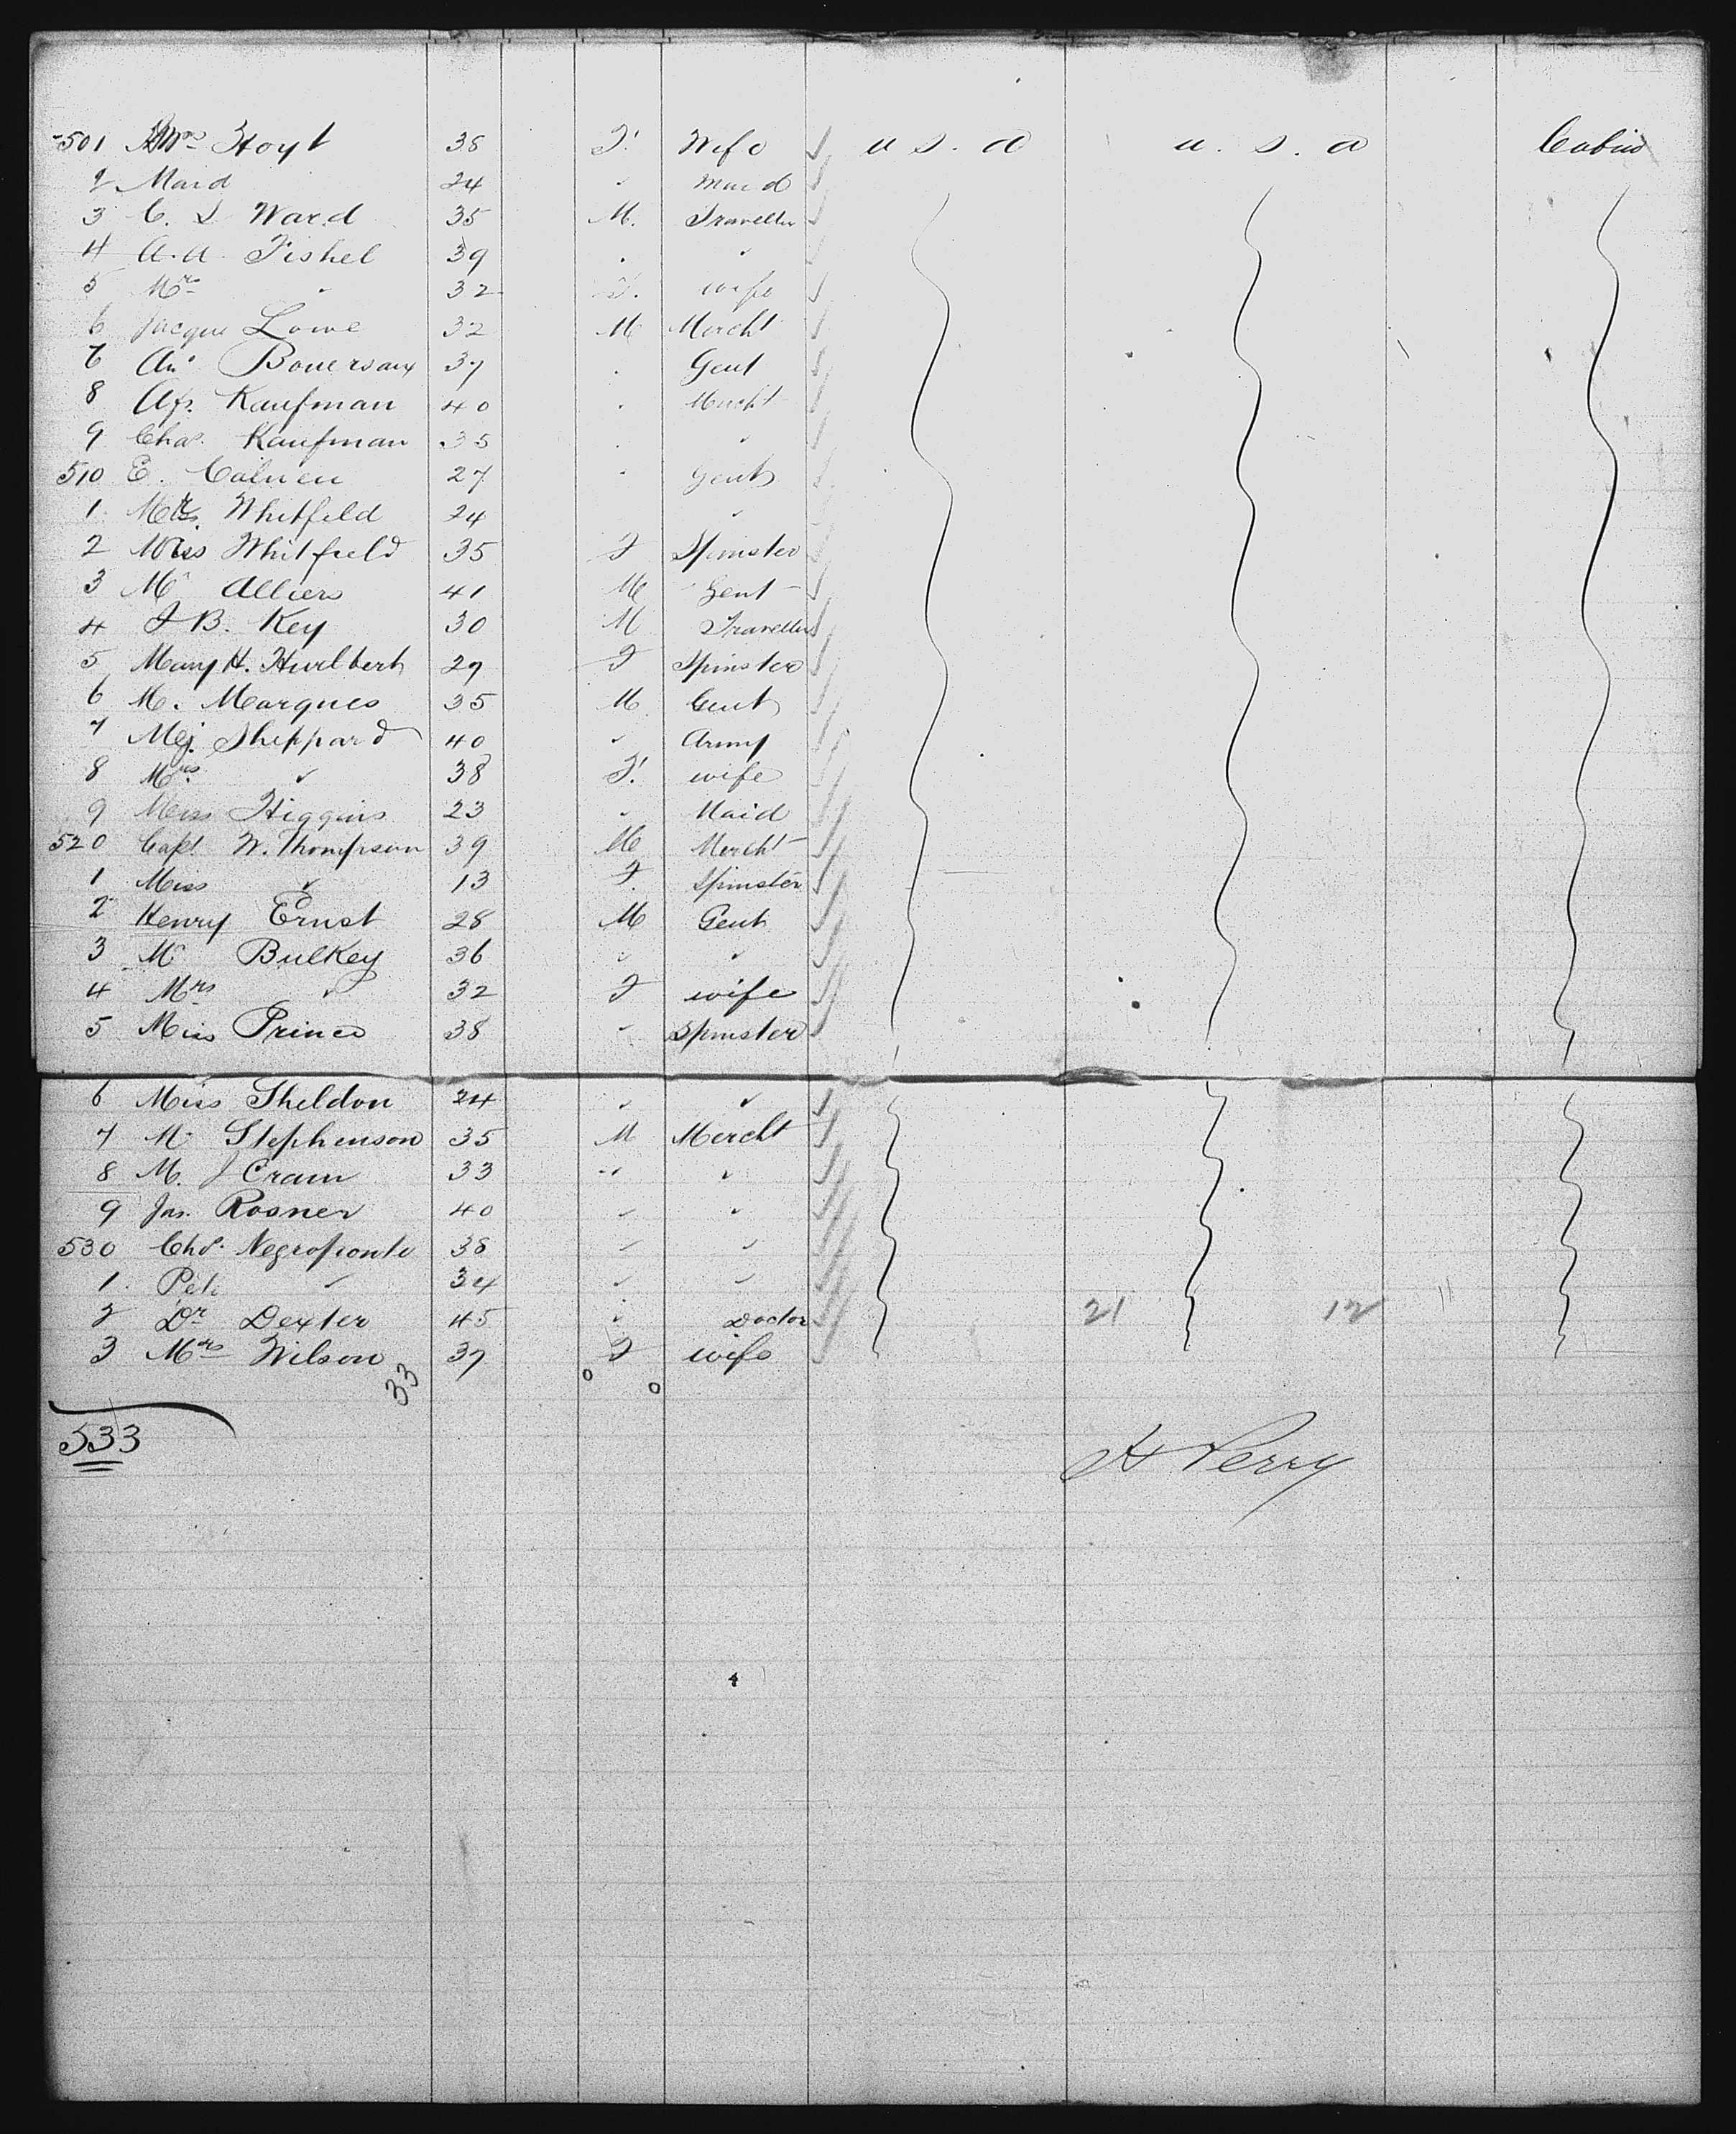 501 Mrs Hoyt 38 F. Wife u s. a u. s. a Cabin
2 Maid 24 " Maid
3 C. S Ward 35 M. Traveller
4 A. A. Fishel 39 " "
5 Mrs " 32 F. wife
6 Jacque Lowe 32 M Mercht
7 Bouersaux 37 " Gent
8 Kaufman 40 " Mercht
9 Chas. Kaufman 35 " "
510 E. 27 " Gent
1 Whitfeld 24 "
2 Miss Whitfield 35 F Spinster
3 Mr Alliers 41 M Gent
4 J B. Key 30 M Traveller
5 Mary H. Hurlbert 29 F Spinster
6 M. Marques 35 M Gent
7 Mej. Sheppard 40 " Army
8 Mrs " 38 F. wife
9 Miss Higgins 23 " Maid
520 Capt. W. Thompson 39 M Mercht
1 Miss " 13 F. Spinster
2 Henry Ernst 28 M Gent
3 Mr Bulkey 36 " "
4 Mrs " 32 F wife
5 Miss Prince 38 " Spinster
6 Miss Sheldon 24 " "
7 Mr Stephenson 35 M Mercht
8 M. J Cram 33 " "
9 Jas. Rosner 40 " "
530 Chs. Negroponte 38 " "
1 Pete " 34 " "
2 Dr Dexter 45 " Doctor 21 12
3 Mrs Wilson 37 F wife
33
533
H Perry